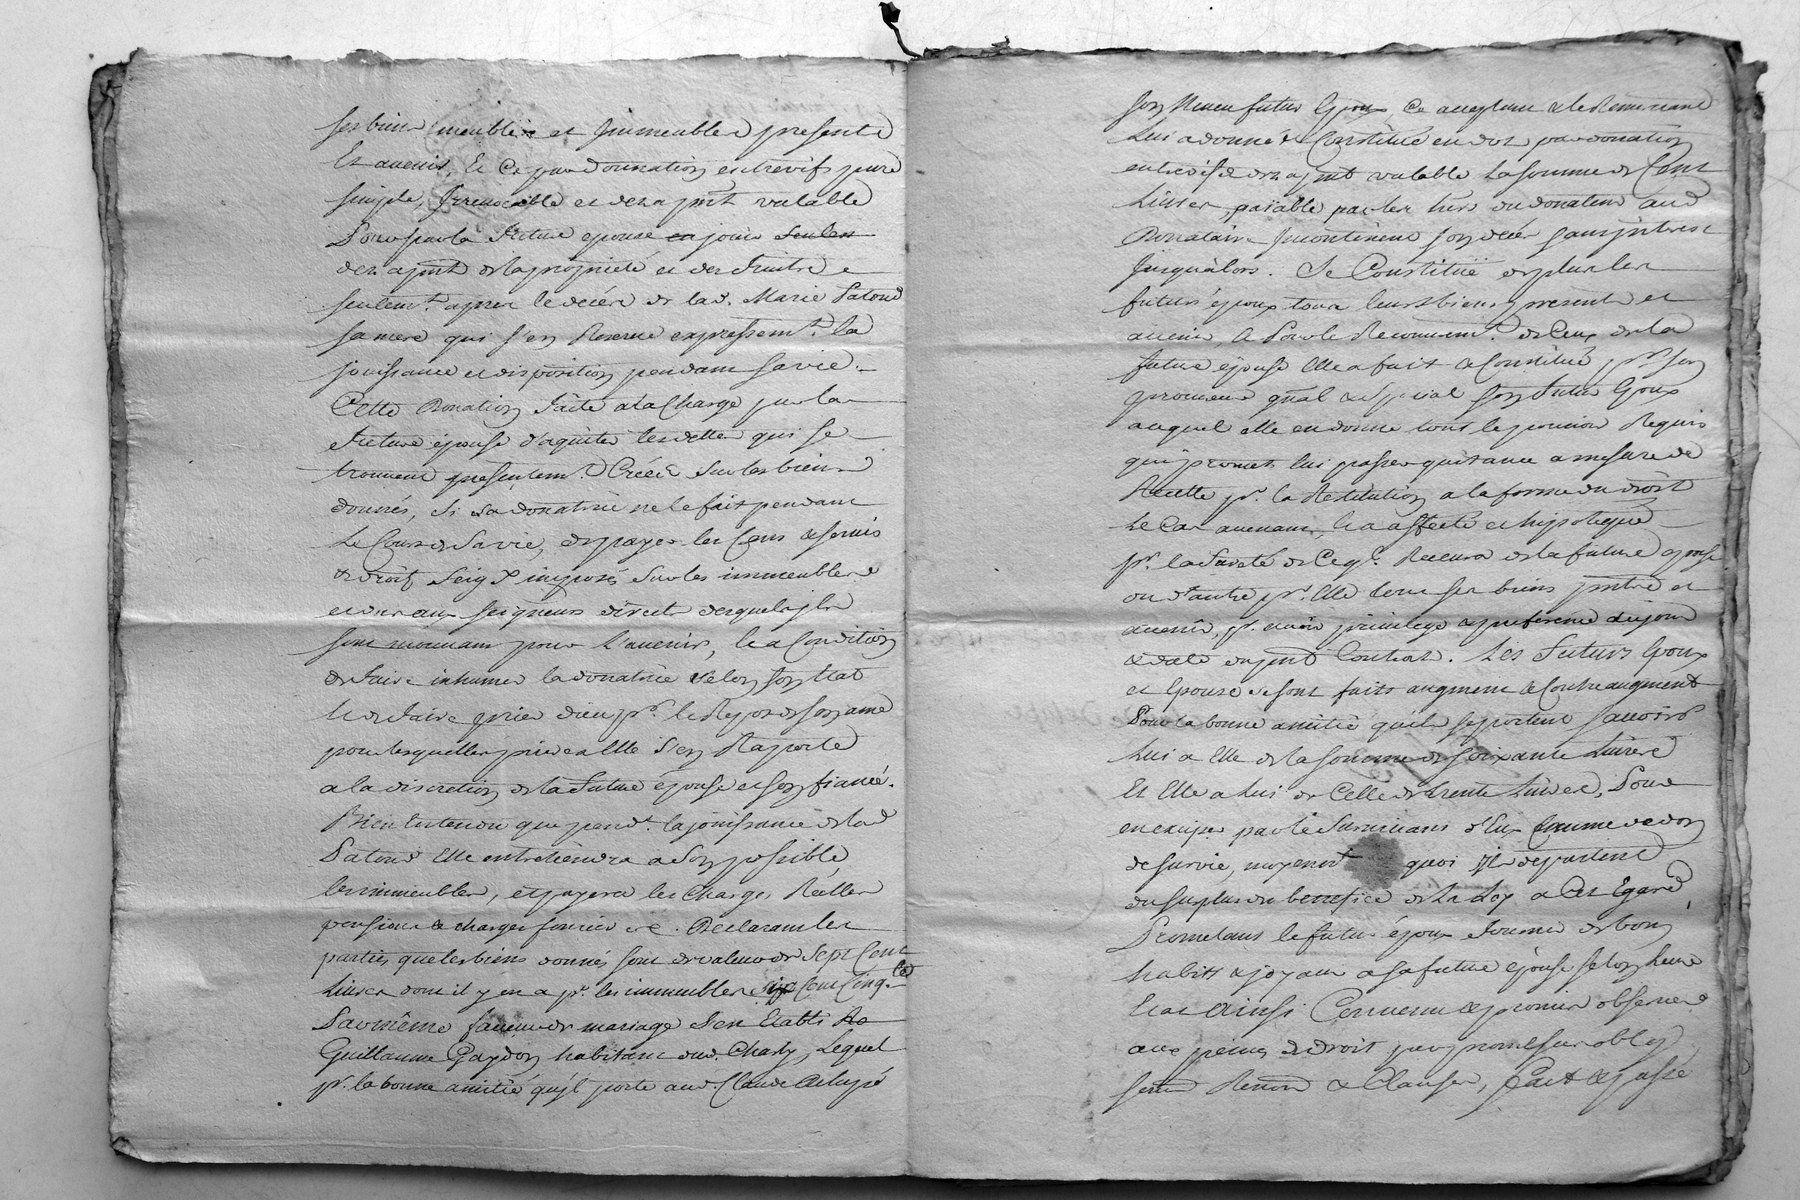 ses biens meubles et Jmmeubles presents
Et avenir, Et Ce par donnation entrevifs pure
simple, Jrrevocable et dez ajourd valable
Pour par la future epouse en jouir seulem
dez ajourd de la proprieté et des fruits
seulemt. apres le décès de lad. Marie Patoud
sa mere qui s'en Reserve expressemt. la
jouissance et disposition pendant sa vie.
Cette Donation faite a la Charge par la
future épouse d'aquiter les dettes qui se
trouvent presentemt. Créées sur les biens
donnés, si la donatrice ne le fait pendant
Le Cours de sa vie, de payer les Cens & servis
& droits Seigx. imposés sur les immeubles
et dus aux seigneurs directs desquels jls
sont mouvans pour l'avenir, Et a Condition
de faire inhumer la donatrice selon son Etat
Et de faire prier dieu pr. le Repos de son ame
pour lesquelles prieres Elle s'en Raporte
a la discretion de la future épouse et son fiancé.
Bien Entendu que pendt. la jouissance de lad
Patoud Elle entretiendra a son possible
les immeubles, et payera les Charges Réelles
pensions & charges foncieres &c. Déclarant les
parties que les biens donnés sont de valeur de Sept Cent
Livres dont il y en a pr. les immeubles six Cent Cinqte.
Pavoméme faveur de mariage s'en Etabli
Guillaume Gaydon habitant aud. Charly, Lequel
pr. la bonne amitié qu'jl porte aud. Claude
son Neveu futur Epoux, Ce acceptant & le Remerciant
Lui a donné & Constitué en dot par donation
entrevifs & dez ajourd valable La somme de Cent
Livres, païable par les hers du donateur aud
Donataire Jncontinent son décès sans jnterest
Jusqu'alors. Se Constituë de plus les
futurs époux tous leurs biens presents et
avenir, & Pour le Recouvremt. de Ceux de la
future épouse Elle a fait & Constitué pr. son
procureur gñal & special son futur Epoux
auquel elle en donne tout le pouvoir Requis
qui promet lui passer quitance a mesure de
Recette pr. la Restitution a la forme du droit
Le Cas avenant, Il a affecté et hipotequé
pr. la Sureté de Ce ql. Recevra de la future epouse
ou d'autre pr. Elle tous ses biens pnts et
avenir, pr. avoir privilege & preference du jour
& date du pnt Contrat. Les Futurs Epoux
et Epouse se sont faits augment & Contreaugment
Pour la bonne amitié qu'ils se portent sçavoir
Lui a Elle de la somme de soixante Livres
Et Elle a Lui de Celle de trente Livres, Pour
en exiger par le Survivant d'Eux Comme de don
de survie, moyenant quoi Jls departent
du surplus du benefice de la Loy a Cet Egard,
Prometant le futur époux fournir de bons
habits & joyaux a sa future épouse selon leur
Etat Ainsi Convenu & promis observer
aux peines de droit par promesses oblig
serm Renon & Clauses, fait & passé